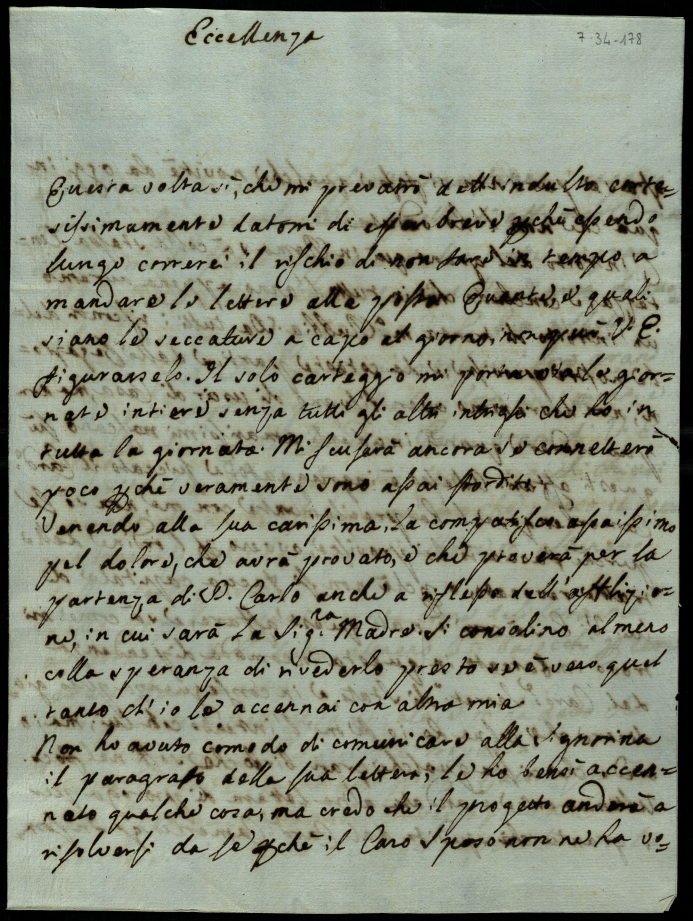 Eccellenza
7-34-178
Questa volta sì, che mi prevarrò dell'indulto corte=
sissimamente datomi di esser breve pchè essendo
lungo correrei il rischio di non fare in tempo a
mandare le lettere alla posta. Quante, e quali
siano le seccature a capo al giorno, non può V. E.
figurarselo. Il solo carteggio mi porta via le gior=
nate intiere senza tutti gli altri intrighi che ho in
tutta la giornata. Mi scuserà ancora se connetterò
poco pchè veramente sono assai stordito.
Venendo alla sua carissima, la compatisco assaissimo
pel dolore, che avrà provato, e che proverà per la
partenza di D. Carlo anche a riflesso dell'afflizio=
ne, in cui sarà la Sig.ra Madre. Si consolino almeno
colla speranza di rivederlo presto se è vero quel
tanto ch'io le accennai con altra mia
Non ho avuto comodo di comunicare alla Signorina
il paragrafo della sua lettera; le ho bensì accen=
nato qualche cosa, ma credo che il progetto anderà a
risolversi da se pchè il Caro Sposo non ne ha vo=